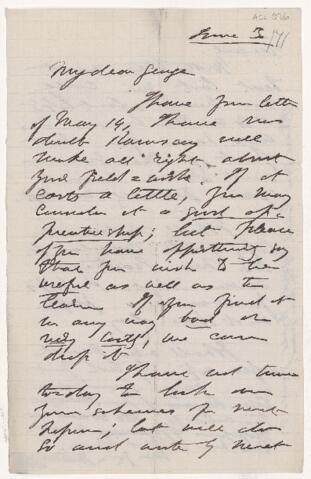 June 3
My dear George
I have your letter
of May 19, I have no
doubt Ramsay will
make all right about
your field-work. If it
costs a little, you may
consider it a sort of
prenticeship; but please
if you have opportunity say
that you wish to be
useful as well as to
learn. If you find it
in any way bad or
very costly, we can
drop it
I have not time
to-day to look over
your schemes for next
session; but will do
so and write by next